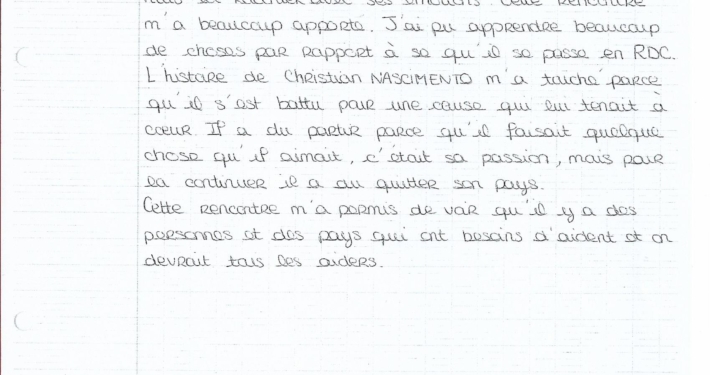 ses émotions. Cette rencontre
m'a beaucoup apporté. J'ai pu apprendre beaucoup
de choses par rapport à se qu'il se passe en RDC.
L'histoire de Christian NASCIMENTO m'a touché parce
qu'il s'est battu pour une cause qui lui tenait à
cœur. Il a du partir parce qu'il faisait quelque
chose qu'il aimait, c'était sa passion, mais pour
la continuer il a du quitter son pays.
Cette rencontre m'a permis de voir qu'il y a des
personnes et des pays qui ont besoins d'aident et on
devrait tous les aiders.